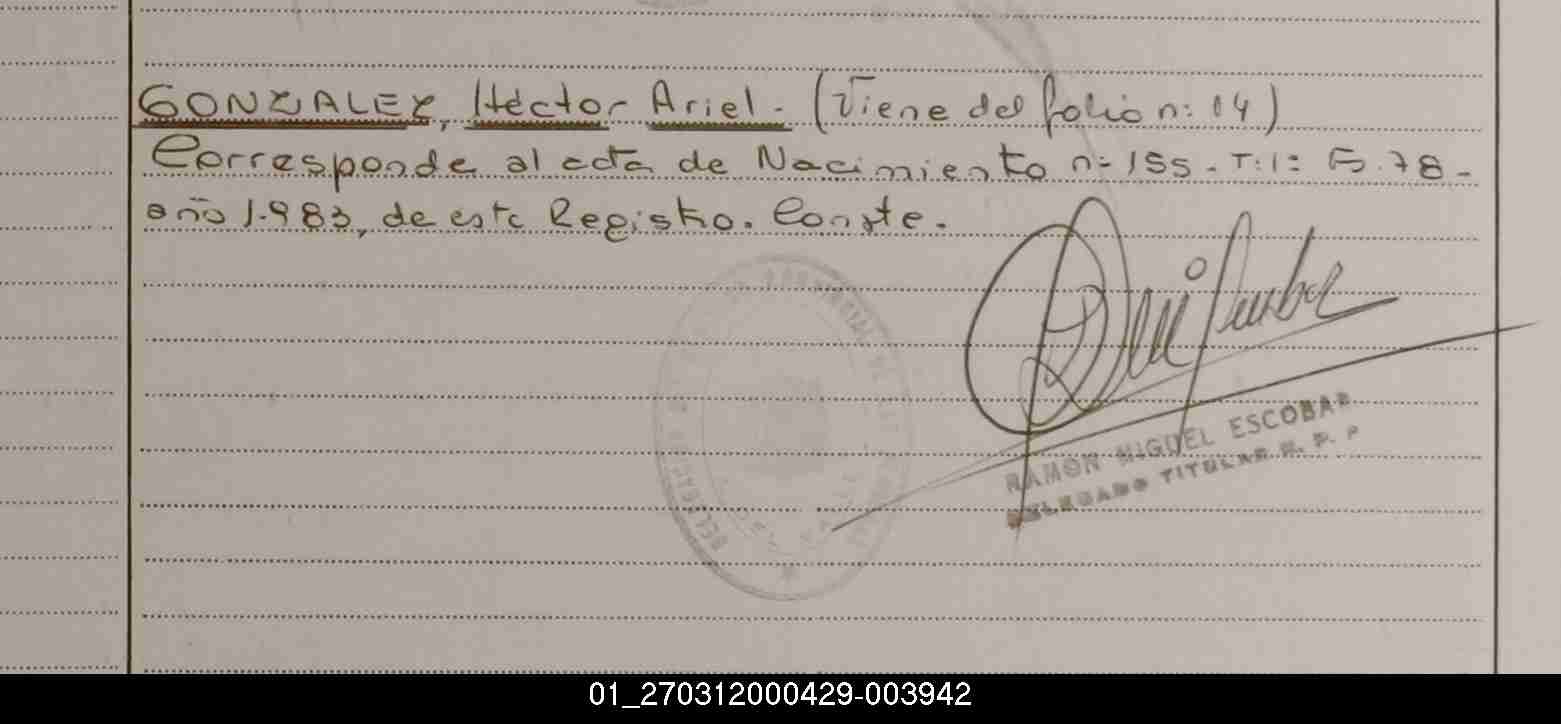 GONZALEZ, Héctor Ariel - (Viene del folio n: 04)
Corresponde al acta de Nacimiento n= 155 - T: 1= F. 78 -
año 1.983, de este Registro. Conste.
RAMON MIGUEL ESCOBAR
DELEGADO TITULAR R. P. P
01_270312000429-003942